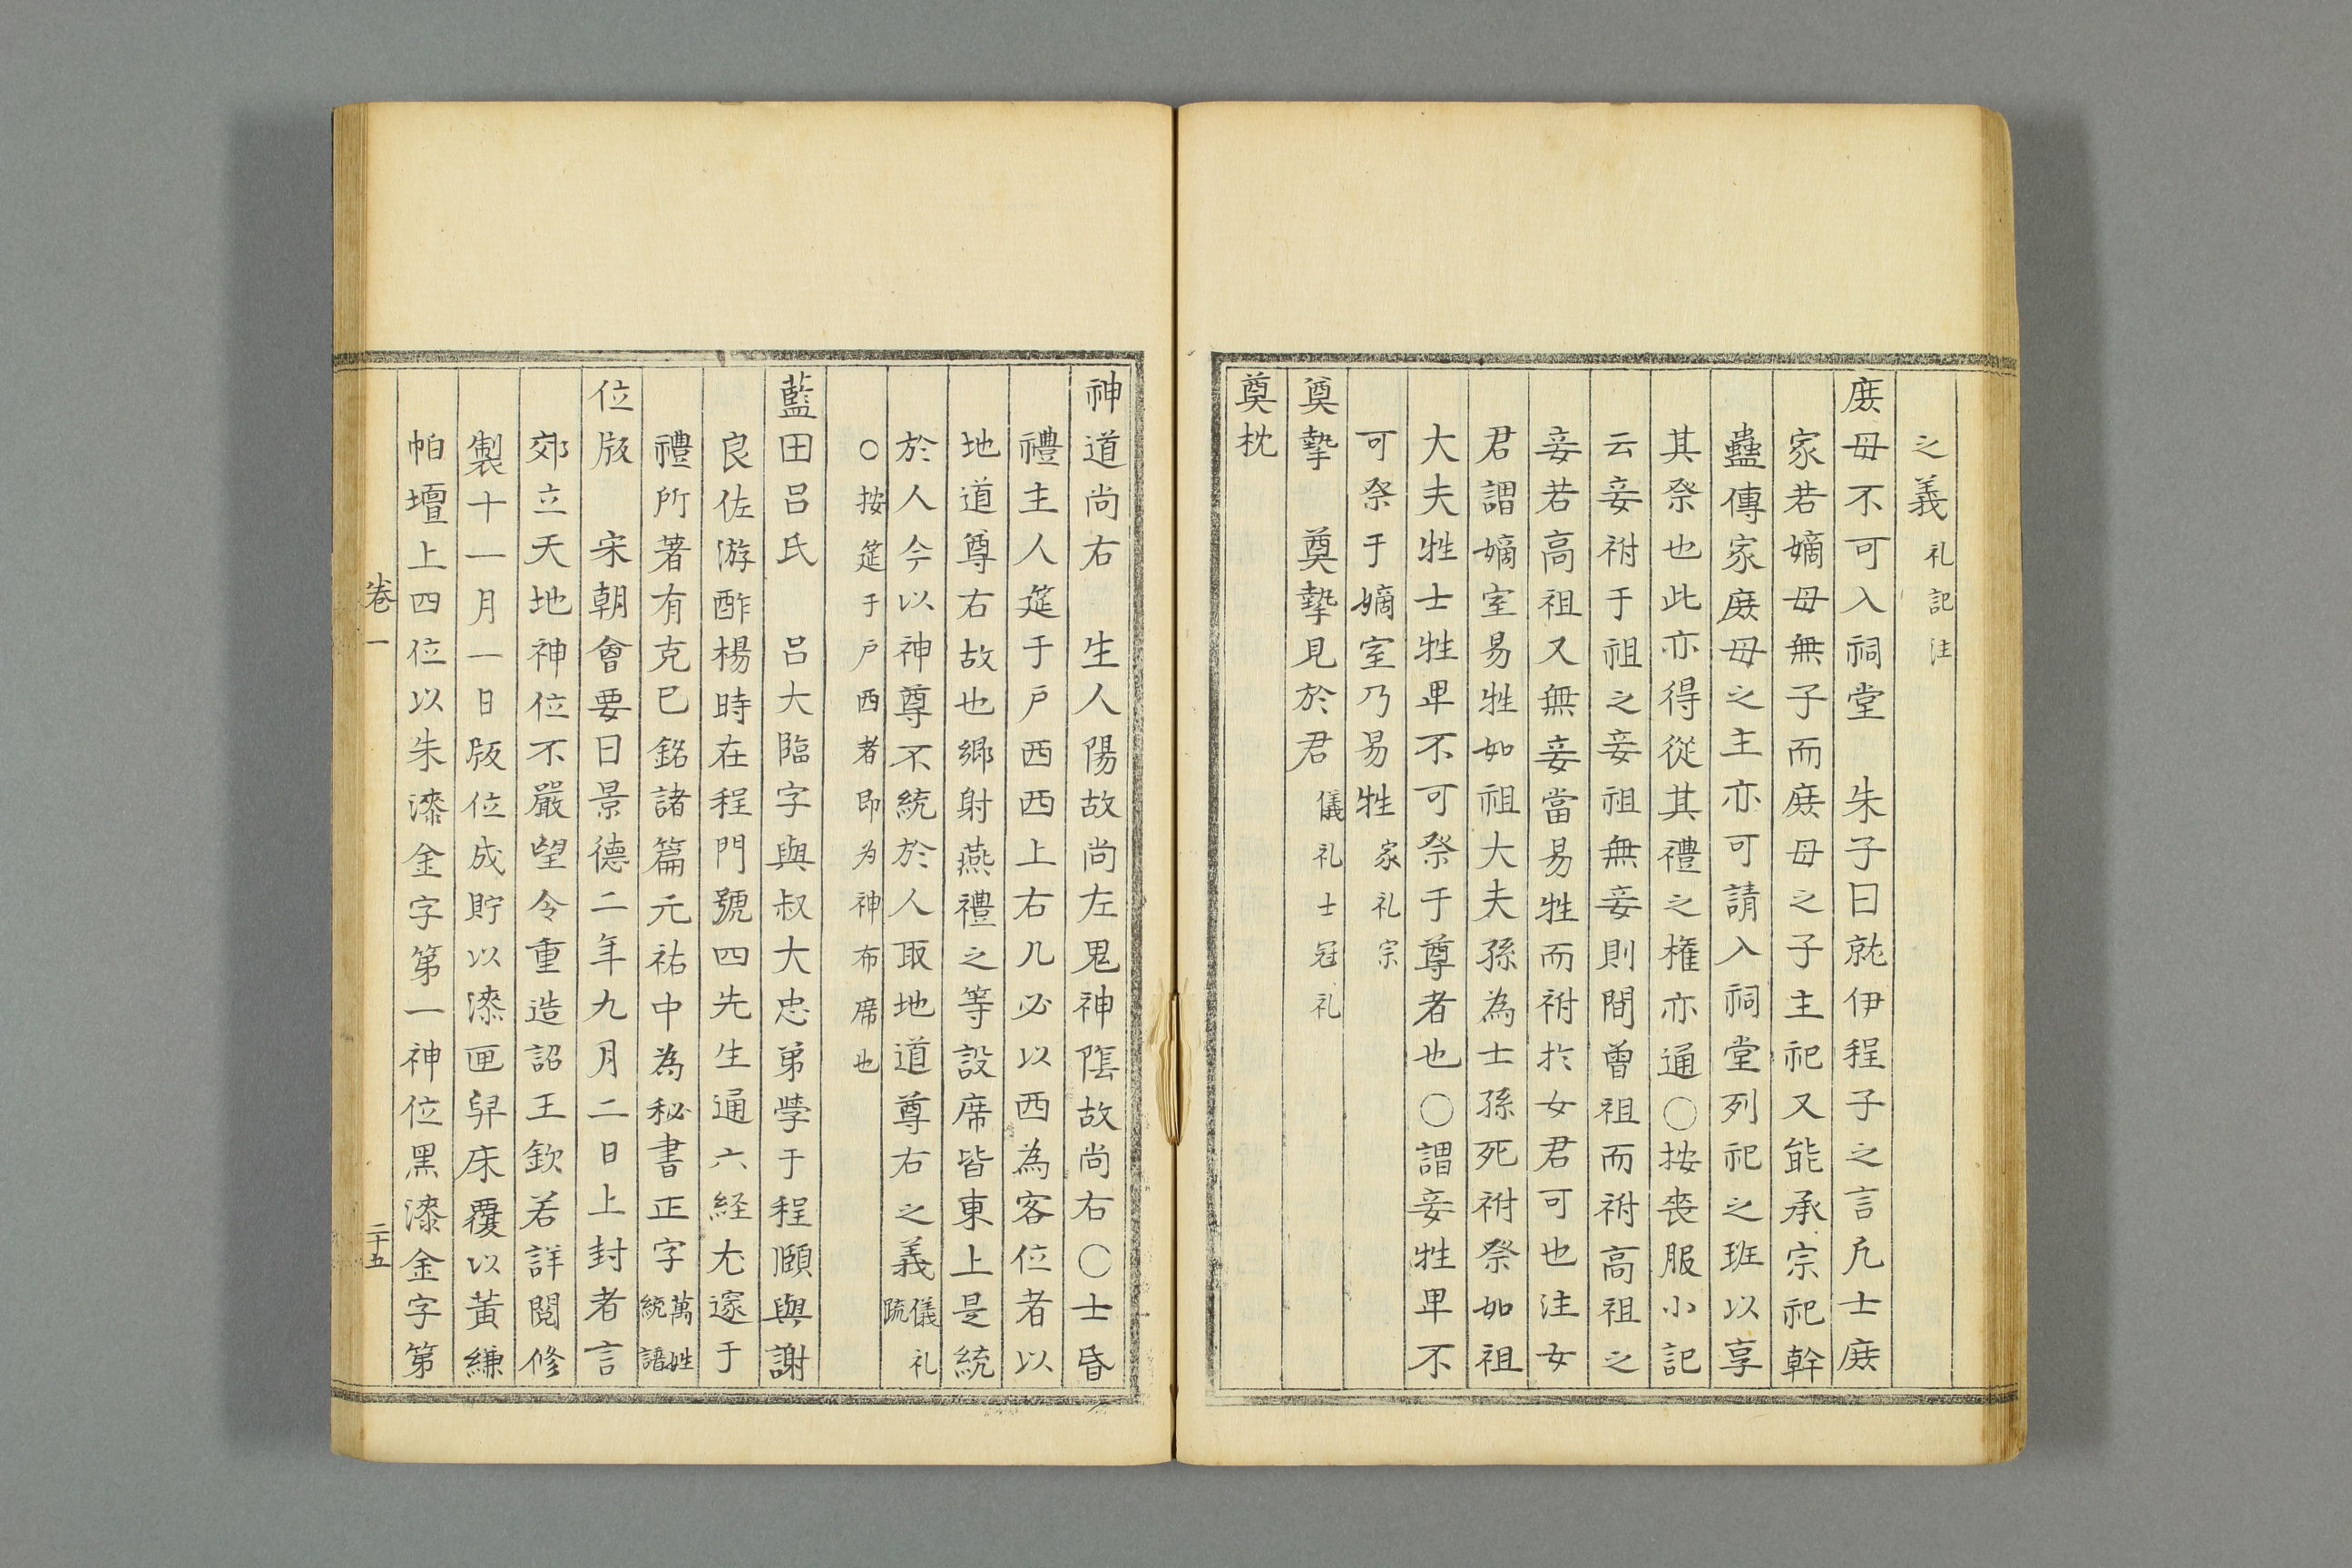 之義礼記注
庻母不可入祠堂　朱子曰就伊程子之言凡士庻
家若嫡母無子而庻母之子主祀又能承宗祀幹
蠱傳家庻母之主亦可請入祠堂列祀之班以享
其祭也此亦得從其禮之權亦通○按喪服小記
云妾祔于祖之妾祖無妾則間曾祖而祔高祖之
妾若高祖又無妾當易牲而祔扵女君可也注女
君謂嫡室易牲如祖大夫孫為士孫死祔祭如祖
大夫牲士牲卑不可祭于尊者也○謂妾牲卑不
可祭于嫡室乃易牲家礼宗
奠摯　奠摯見於君儀礼士冠礼
奠枕
神道尚右　生人陽故尚左鬼神隂故尚右○士昏
禮主人筵于戶西西上右几必以西為客位者以
地道尊右故也鄉射燕禮之等設席皆東上是統
於人今以神尊不統於人取地道尊右之義儀礼疏
○按筵于戶西者即为神布席也
藍田呂氏　呂大臨字與叔大忠弟學于程頤與謝
良佐游酢楊時在程門號四先生通六経尤邃于
禮所著有克已銘諸篇元祐中為秘書正字萬姓統譜
位版　宋朝會要曰景德二年九月二日上封者言
郊立天地神位不嚴望令重造詔王欽若詳閱修
製十一月一日版位成貯以漆匣舁床覆以黃縑
帕壇上四位以朱漆金字第一神位黑漆金字第
卷一
二十五